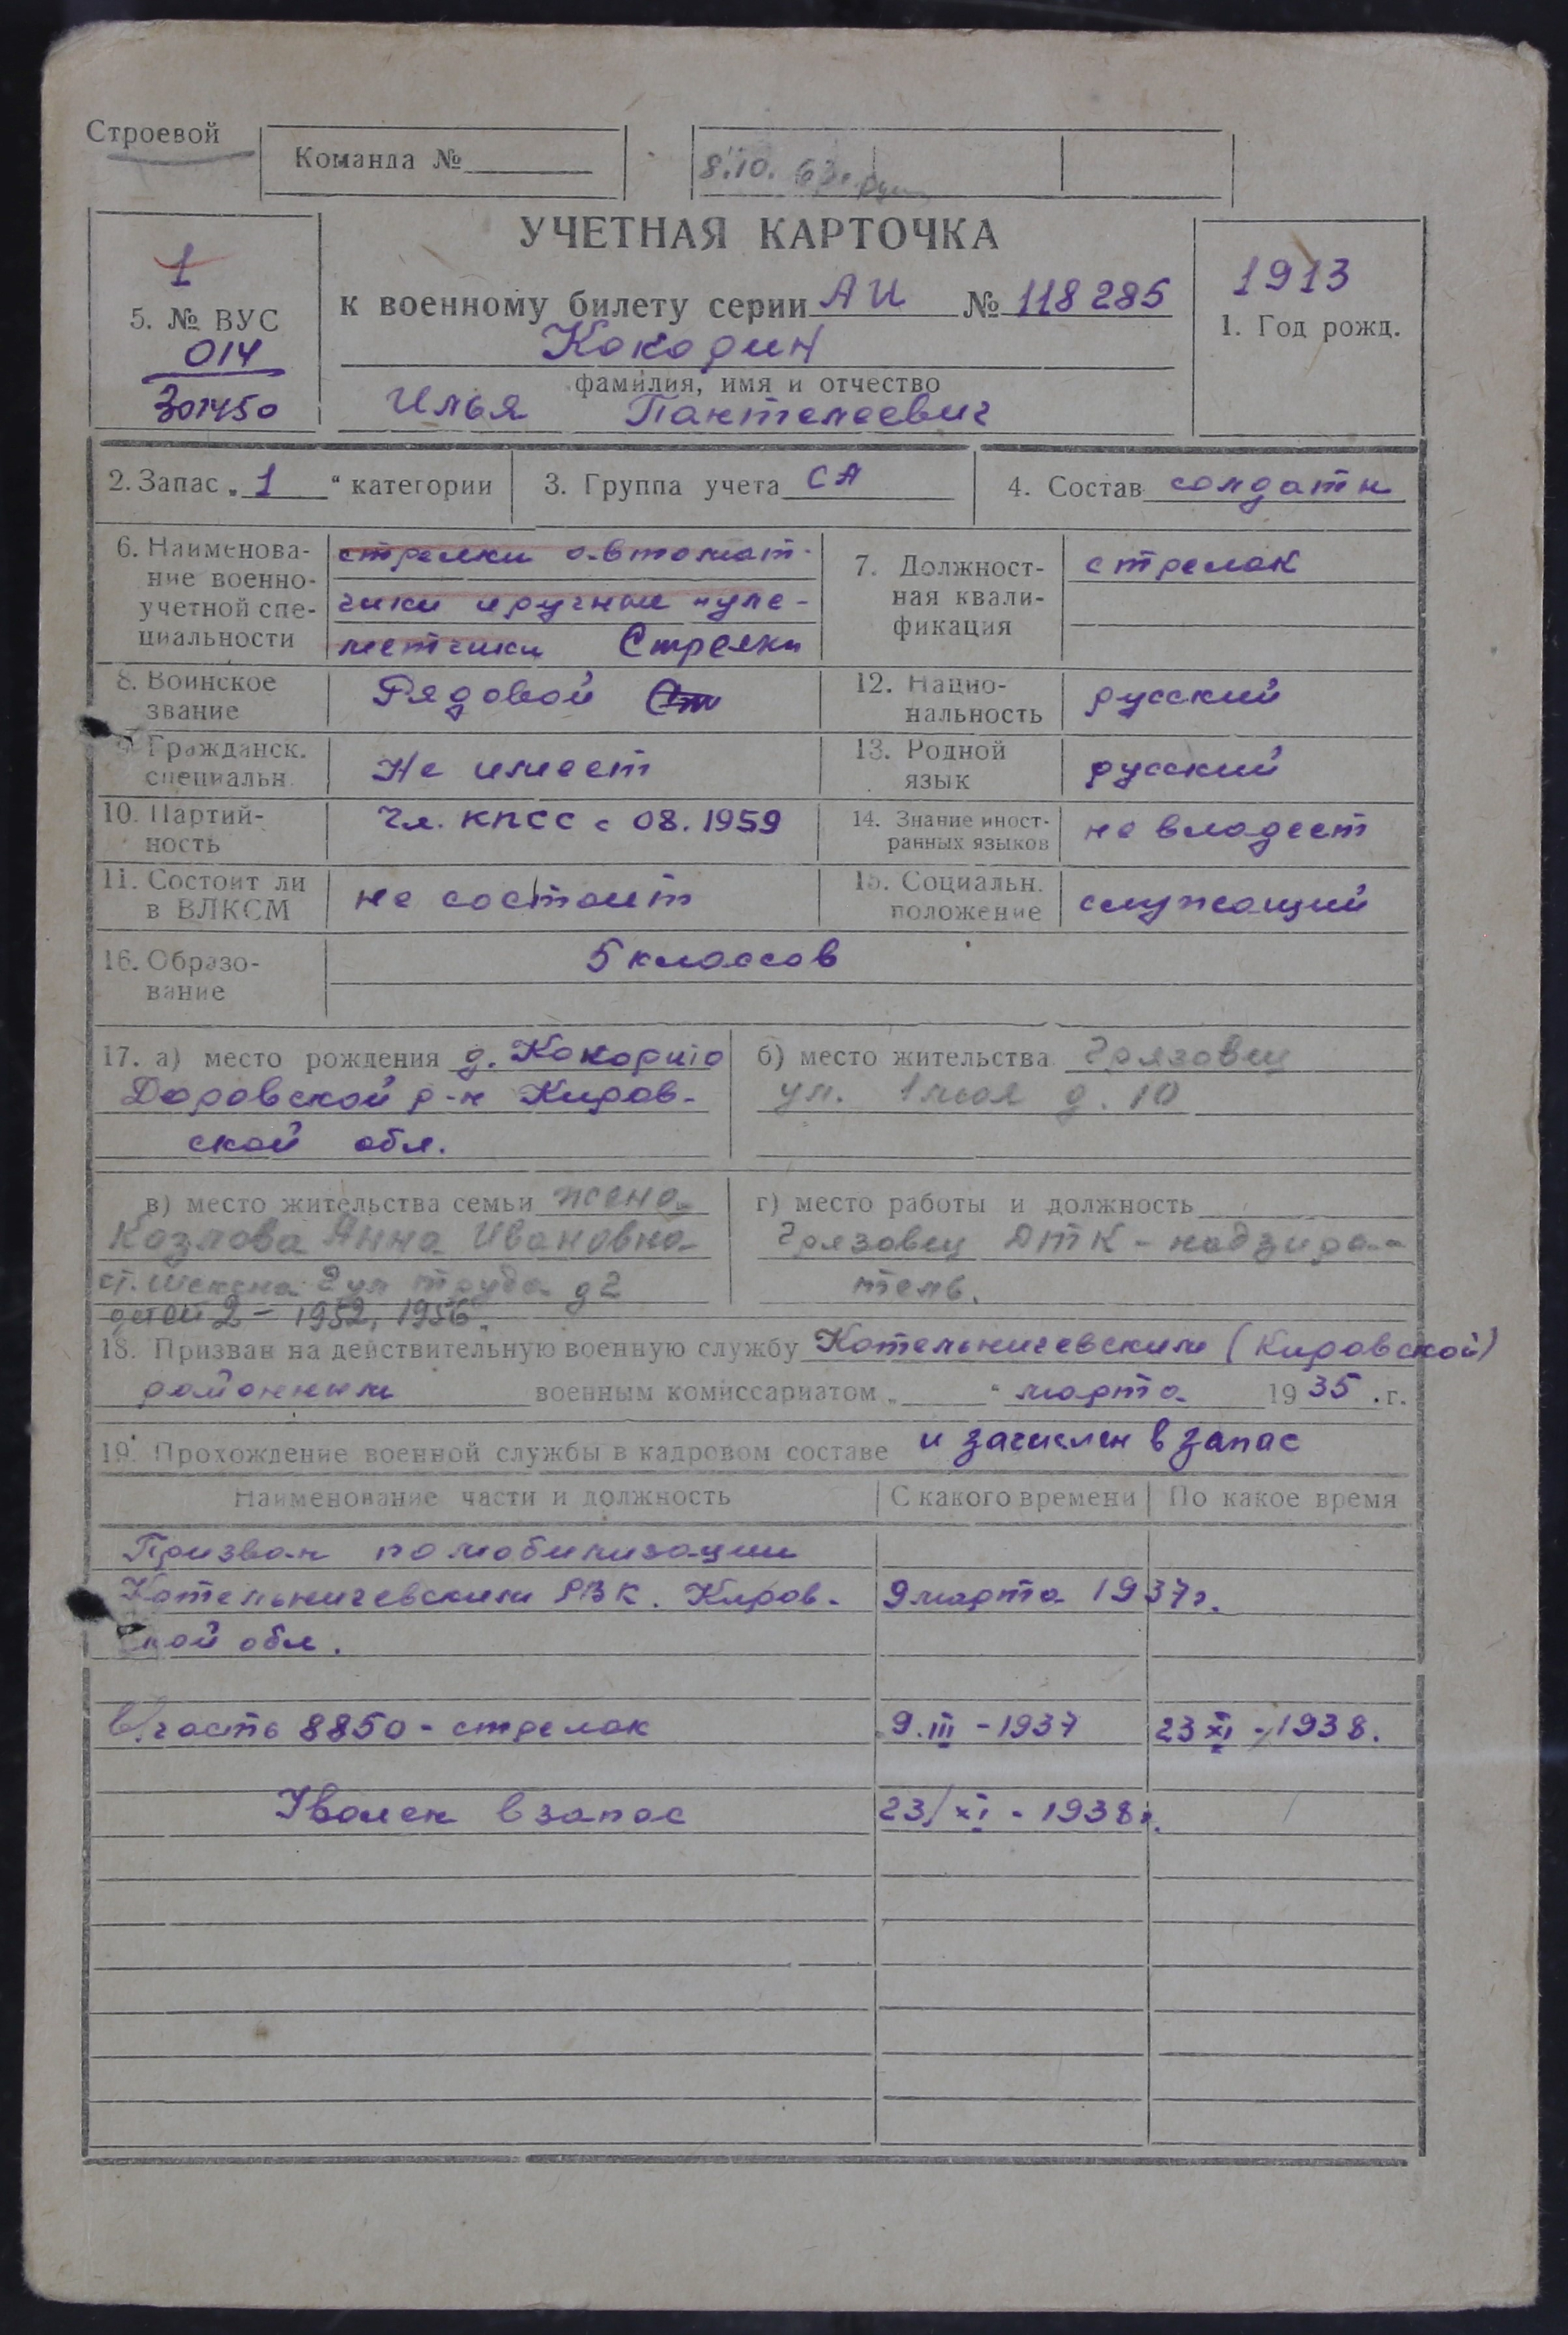 Строевой
Команда №
8.10. 63г.
УЧЕТНАЯ КАРТОЧКА
1
5. № ВУС
014
301450
к военному билету серии АИ № 118285
Кокорин
фамилия, имя и отчество
Илья Пантелеевич
1913
1. Год рожд.
2. Запас „1“ категории
3. Группа учета СА
4. Состав солдаты
6. Наименова-
ние военно-
учетной спе-
циальности
стрелки автомат-
чики и ручные пуле-
метчики Стрелки
7. Должност-
ная квали-
фикация
стрелок
8. Воинское
звание
Рядовой
12. Нацио-
нальность
русский
9. Гражданск.
специальн.
Не имеет
13. Родной
язык
русский
10. Партий-
ность
Чл. КПСС с 08.1959
14. Знание иност-
ранных языков
не владеет
11. Состоит ли
в ВЛКСМ
не состоит
15. Социальн.
положение
служащий
16. Образо-
вание
5 классов
17. а) место рождения д. Кокорино
Даровской р-н Киров-
ской обл.
б) место жительства Грязовец
ул. 1 мая д. 10
в) место жительства семьи жена
Козлова Анна Ивановна
ст. Шексна 2 ул труда д 2
детей 2 – 1952, 1956.
г) место работы и должность
Грязовец ДТК – надзира-
тель.
18. Призван на действительную военную службу Котельничевским (Кировской)
районным военным комиссариатом „ “ марта 1935.г.
19. Прохождение военной службы в кадровом составе и зачислен в запас
Наименование части и должность
С какого времени
По какое время
Призван по мобилизации
Котельничевским РВК. Киров-
9 марта 1937г.
ской обл.
в/часть 8850 - стрелок
9.III - 1937
23 XI - 1938.
Уволен в запас
23/XI - 1938г.